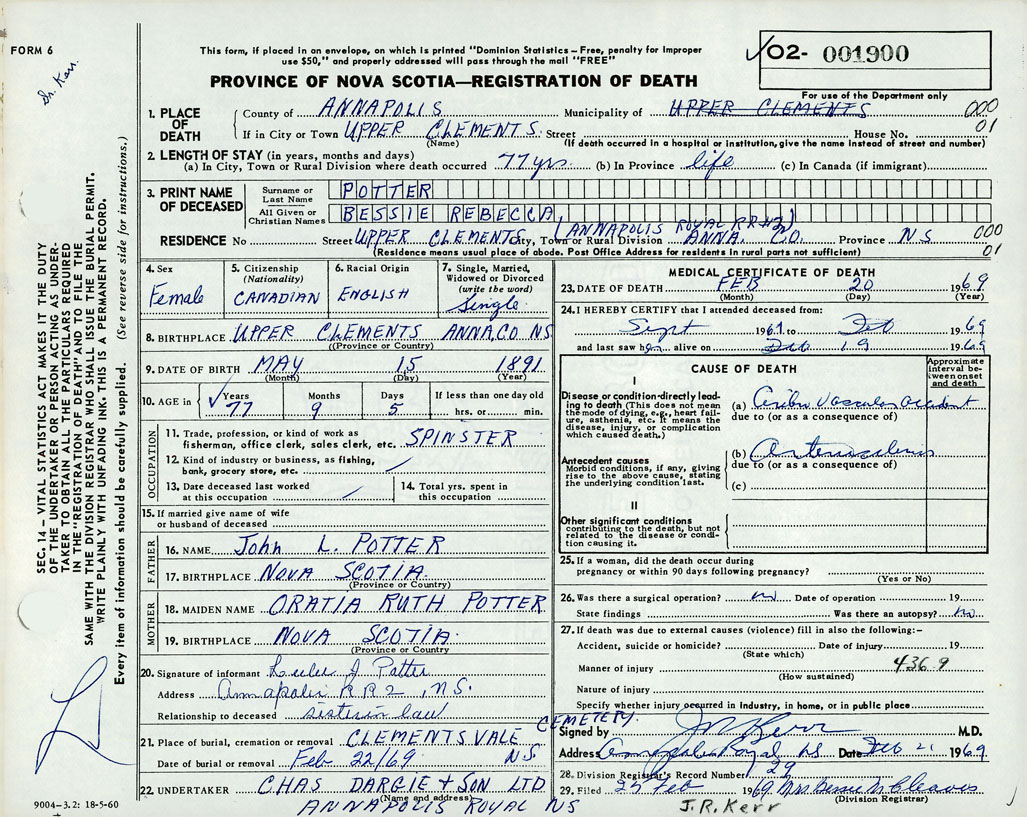 FORM 6
Dr. Kerr.
This form, if placed in an envelope, on which is printed "Dominion Statistics – Free, penalty for improper
use $50," and properly addressed will pass through the mail "FREE"
PROVINCE OF NOVA SCOTIA—REGISTRATION OF DEATH
02- 001900
For use of the Department only
000
01
1. PLACE OF DEATH
County of ANNAPOLIS Municipality of UPPER CLEMENTS
If in City or Town UPPER CLEMENTS. Street House No.
(Name) (If death occurred in a hospital or institution, give the name instead of street and number)
2. LENGTH OF STAY (in years, months and days)
(a) In City, Town or Rural Division where death occurred 77 yrs. (b) In Province life (c) In Canada (if immigrant)
3. PRINT NAME OF DECEASED
Surname or Last Name POTTER
All Given or Christian Names BESSIE REBECCA
(ANNAPOLIS ROYAL RR#2)
RESIDENCE No Street UPPER CLEMENTS City, Town or Rural Division ANNA. CO. Province NS
(Residence means usual place of abode. Post Office Address for residents in rural parts not sufficient)
000
01
4. Sex Female
5. Citizenship (Nationality) CANADIAN
6. Racial Origin ENGLISH
7. Single, Married, Widowed or Divorced (write the word) Single
8. BIRTHPLACE UPPER CLEMENTS ANNA.CO NS
(Province or Country)
9. DATE OF BIRTH MAY 15 1891
(Month) (Day) (Year)
10. AGE in Years 77 Months 9 Days 5 If less than one day old hrs. or min.
OCCUPATION
11. Trade, profession, or kind of work as
fisherman, office clerk, sales clerk, etc. SPINSTER
12. Kind of industry or business, as fishing,
bank, grocery store, etc.
13. Date deceased last worked
at this occupation
14. Total yrs. spent in
this occupation
15. If married give name of wife
or husband of deceased
FATHER
16. NAME John L. POTTER
17. BIRTHPLACE NOVA SCOTIA.
(Province or Country)
MOTHER
18. MAIDEN NAME ORATIA RUTH POTTER
19. BIRTHPLACE NOVA SCOTIA.
(Province or Country)
20. Signature of informant J. Potter
Address Annapolis RR2, N.S.
Relationship to deceased sister in law
21. Place of burial, cremation or removal CLEMENTSVALE CEMETERY. N.S.
Date of burial or removal Feb 22/69
22. UNDERTAKER CHAS DARGIE + SON LTD
(Name and address)
ANNAPOLIS ROYAL NS
MEDICAL CERTIFICATE OF DEATH
23. DATE OF DEATH FEB 20 1969
(Month) (Day) (Year)
24. I HEREBY CERTIFY that I attended deceased from:
Sept 1961 to Feb 1969
and last saw her alive on Feb 19 1969
CAUSE OF DEATH
Approximate interval between onset and death
I
Disease or condition directly leading to death (This does not mean the mode of dying, e.g., heart failure, asthenia, etc. It means the disease, injury, or complication which caused death.)
(a) Cerebro Vascular accident
due to (or as a consequence of)
Antecedent causes
Morbid conditions, if any, giving rise to the above cause, stating the underlying condition last.
(b)
due to (or as a consequence of)
(c)
II
Other significant conditions
contributing to the death, but not related to the disease or condition causing it.
25. If a woman, did the death occur during
pregnancy or within 90 days following pregnancy?
(Yes or No)
26. Was there a surgical operation? no Date of operation 19
State findings Was there an autopsy? no
27. If death was due to external causes (violence) fill in also the following:–
Accident, suicide or homicide? Date of injury 19
(State which)
436.9
Manner of injury
(How sustained)
Nature of injury
Specify whether injury occurred in industry, in home, or in public place
Signed by J R Kerr M.D.
Address Annapolis Royal NS. Date Feb 21 1969
28. Division Registrar's Record Number 29
29. Filed 25 Feb 1969 Mrs Bessie N Cleaves
(Division Registrar)
J.R. Kerr
SEC. 14 – VITAL STATISTICS ACT MAKES IT THE DUTY
OF THE UNDERTAKER OR PERSON ACTING AS UNDER-
TAKER TO OBTAIN ALL THE PARTICULARS REQUIRED
IN THE "REGISTRATION OF DEATH" AND TO FILE THE
SAME WITH THE DIVISION REGISTRAR WHO SHALL ISSUE THE BURIAL PERMIT.
WRITE PLAINLY WITH UNFADING INK. THIS IS A PERMANENT RECORD.
Every item of information should be carefully supplied. (See reverse side for instructions.)
9004-3.2: 18-5-60